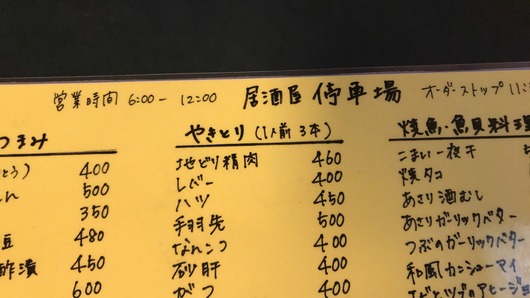 営業時間 6:00- 12:00 居酒屋 停車場 オーダーストップ 11:
つまみ
400
500
350
豆 480
酢漬 450
600
やきとり (1人前 3本)
地どり精肉 460
レバー 400
ハツ 450
手羽先 500
なんこつ 400
砂肝 400
がつ 400
焼魚・魚貝料理
こまい一夜干
焼タコ
あさり酒むし
あさりガーリックバター
つぶのガーリックバター
和風カニシューマイ